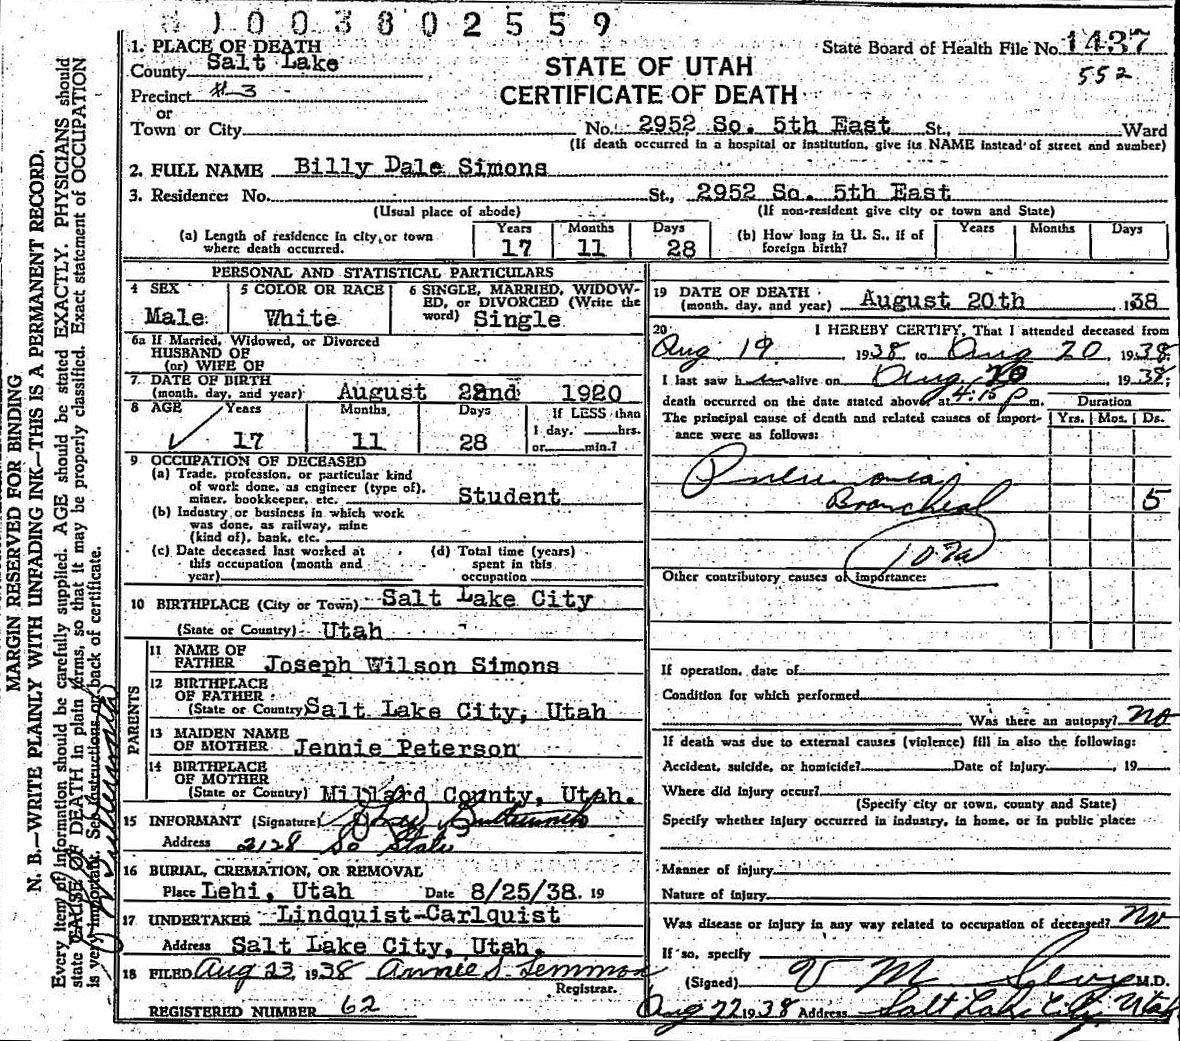 1003802559
1. PLACE OF DEATH
State Board of Health File No. 1437
552
County Salt Lake
STATE OF UTAH
Precinct #3
CERTIFICATE OF DEATH
or
Town or City
No. 2952 So. 5th East St., Ward
(If death occurred in a hospital or institution, give its NAME instead of street and number)
2. FULL NAME Billy Dale Simons
3. Residence: No. St., 2952 So. 5th East
(Usual place of abode)
(If non-resident give city or town and State)
(a) Length of residence in city or town where death occurred. Years 17 Months 11 Days 28
(b) How long in U. S., if of foreign birth? Years Months Days
PERSONAL AND STATISTICAL PARTICULARS
4 SEX Male
5 COLOR OR RACE White
6 SINGLE, MARRIED, WIDOWED, or DIVORCED (Write the word) Single
6a If Married, Widowed, or Divorced
HUSBAND OF
(or) WIFE OF
7 DATE OF BIRTH
(month, day, and year) August 22nd 1920
8 AGE Years 17 Months 11 Days 28
If LESS than
1 day, hrs.
or min.?
9 OCCUPATION OF DECEASED
(a) Trade, profession, or particular kind
of work done, as engineer (type of),
miner, bookkeeper, etc. Student
(b) Industry or business in which work
was done, as railway, mine
(kind of), bank, etc.
(c) Date deceased last worked at
this occupation (month and
year)
(d) Total time (years)
spent in this
occupation
10 BIRTHPLACE (City or Town) Salt Lake City
(State or Country) Utah
PARENTS
11 NAME OF
FATHER Joseph Wilson Simons
12 BIRTHPLACE
OF FATHER
(State or Country) Salt Lake City, Utah
13 MAIDEN NAME
OF MOTHER Jennie Peterson
14 BIRTHPLACE
OF MOTHER
(State or Country) Millard County, Utah.
15 INFORMANT (Signature)
Address 2128 So State
16 BURIAL, CREMATION, OR REMOVAL
Place Lehi, Utah Date 8/25/38. 19
17 UNDERTAKER Lindquist-Carlquist
Address Salt Lake City, Utah.
18 FILED Aug 23, 1938 Annie S. Lemmon
Registrar.
REGISTERED NUMBER 62
19 DATE OF DEATH
(month, day, and year) August 20th 1938
20 I HEREBY CERTIFY, That I attended deceased from
Aug 19 1938, to Aug 20, 1938;
I last saw him alive on Aug 20, 1938;
death occurred on the date stated above at 4:15 p m. Duration
The principal cause of death and related causes of importance were as follows: Yrs. Mos. Ds.
Pneumonia
Bronchial 5
107a
Other contributory causes of importance:
If operation, date of
Condition for which performed
Was there an autopsy? No
If death was due to external causes (violence) fill in also the following:
Accident, suicide, or homicide? Date of injury , 19
Where did injury occur?
(Specify city or town, county and State)
Specify whether injury occurred in industry, in home, or in public place:
Manner of injury
Nature of injury
Was disease or injury in any way related to occupation of deceased? No
If so, specify
(Signed) V M M.D.
Aug 22 1938 Address Salt Lake City, Utah
MARGIN RESERVED FOR BINDING
N. B.—WRITE PLAINLY WITH UNFADING INK—THIS IS A PERMANENT RECORD.
Every item of information should be carefully supplied. AGE should be stated EXACTLY. PHYSICIANS should
state CAUSE OF DEATH in plain terms, so that it may be properly classified. Exact statement of OCCUPATION
is very important. See instructions on back of certificate.